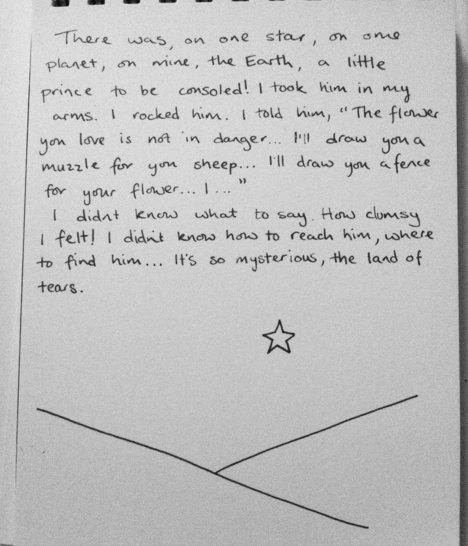 There was, on one star, on one
planet, on mine, the Earth, a little
prince to be consoled! I took him in my
arms. I rocked him. I told him, "The flower
you love is not in danger... I'll draw you a
muzzle for you sheep... I'll draw you a fence
for your flower... I..."
I didnt know what to say. How clumsy
I felt! I didn't know how to reach him, where
to find him... It's so mysterious, the land of
tears.